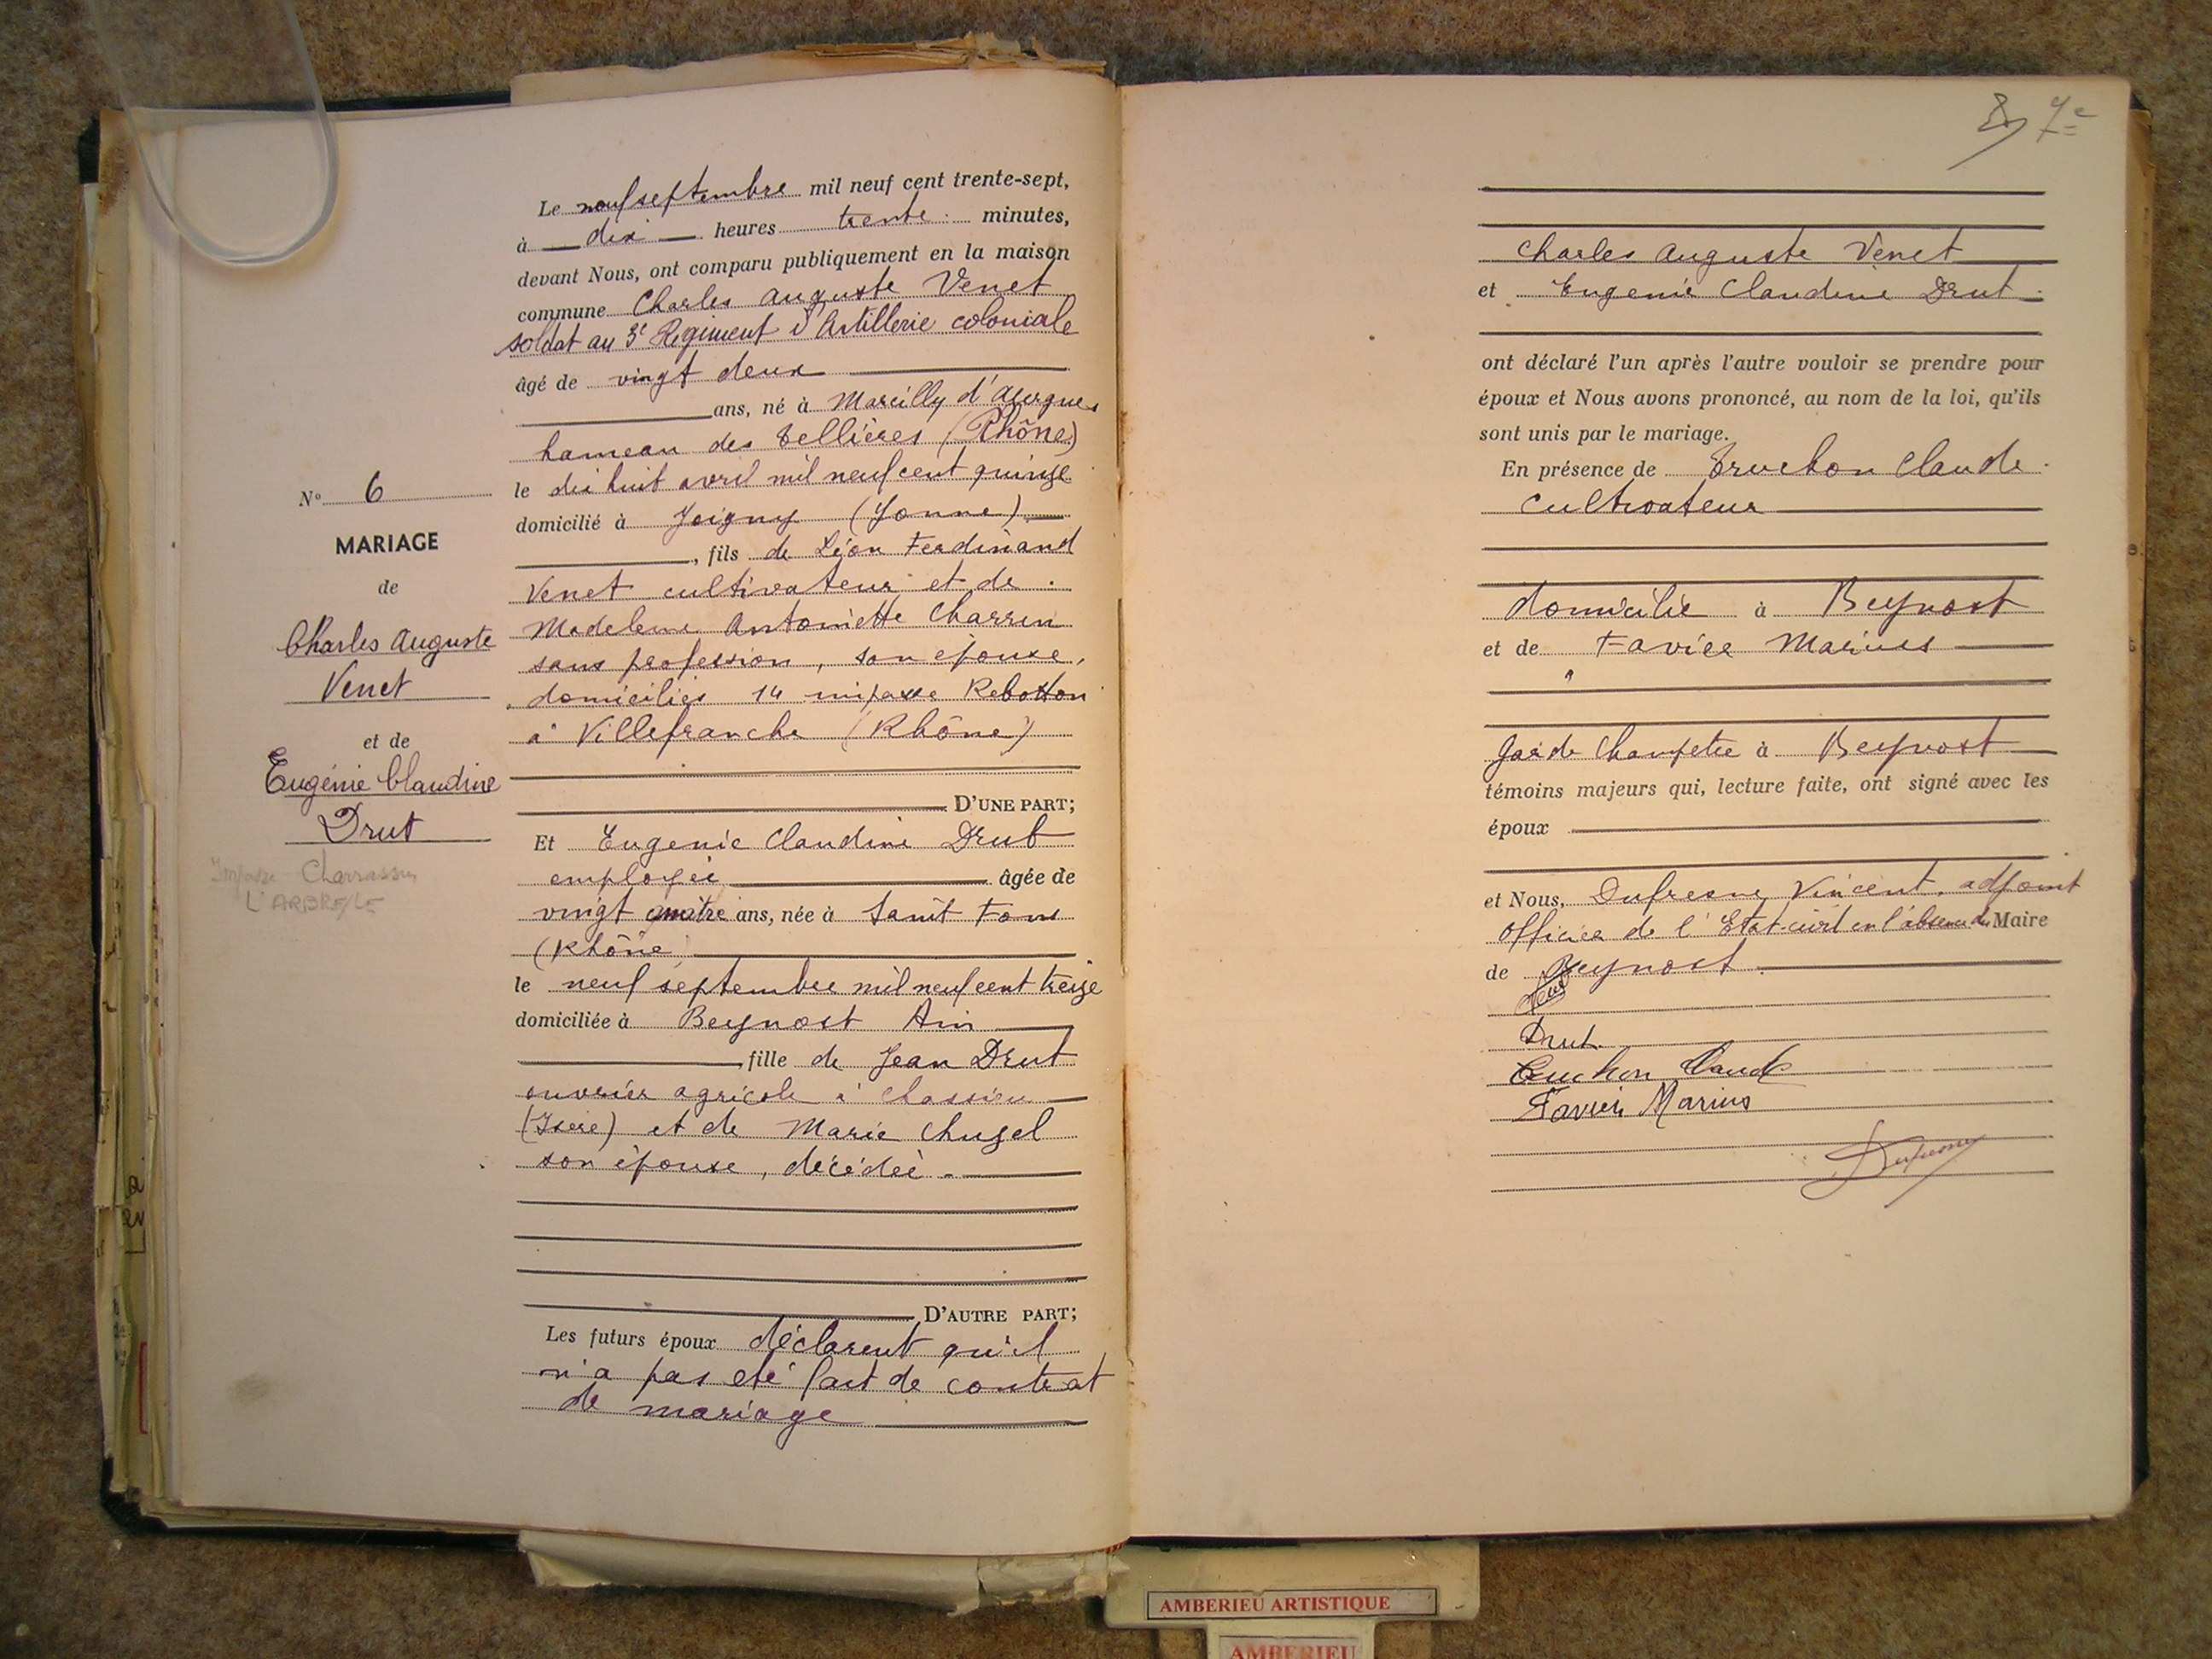 Le neuf septembre mil neuf cent trente-sept,
à dix heures trente minutes,
devant Nous, ont comparu publiquement en la maison
commune Charles Auguste Venet
soldat au 3e Régiment d'Artillerie coloniale
âgé de vingt deux
ans, né à Marcilly d'Azergues
hameau des Tellières (Rhône)
le dix huit avril mil neuf cent quinze
domicilié à Joigny (Yonne)
, fils de Léon Ferdinand
Venet cultivateur et de
Madeleine Antoinette Charrin
sans profession, son épouse,
domiciliés 14 impasse Rebotton
à Villefranche (Rhône)
D'UNE PART;
Et Eugénie Claudine Drut
employée âgée de
vingt quatre ans, née à Saint Fons
(Rhône
le neuf septembre mil neuf cent treize
domiciliée à Beynost Ain
fille de Jean Drut
ouvrier agricole à Chassieu
(Isère) et de Marie Chuzel
son épouse, décédée
D'AUTRE PART;
Les futurs époux déclarent qu'il
n'a pas été fait de contrat
de mariage
N° 6
MARIAGE
de
Charles Auguste
Venet
et de
Eugénie Claudine
Drut
Impasse Charrassin
L'ARBRESLE
8 7e
Charles Auguste Venet
et Eugenie Claudine Drut
ont déclaré l'un après l'autre vouloir se prendre pour
époux et Nous avons prononcé, au nom de la loi, qu'ils
sont unis par le mariage.
En présence de Truchon Claude
cultivateur
domicilié à Beynost
et de Favier Marius
garde Champetre à Beynost
témoins majeurs qui, lecture faite, ont signé avec les
époux
et Nous, Dufresne Vincent, adjoint
officier de l'Etat-civil en l'absence du Maire
de Beynost
Drut
Truchon Claude
Favier Marius
Dufresne
AMBERIEU ARTISTIQUE
AMBERIEU